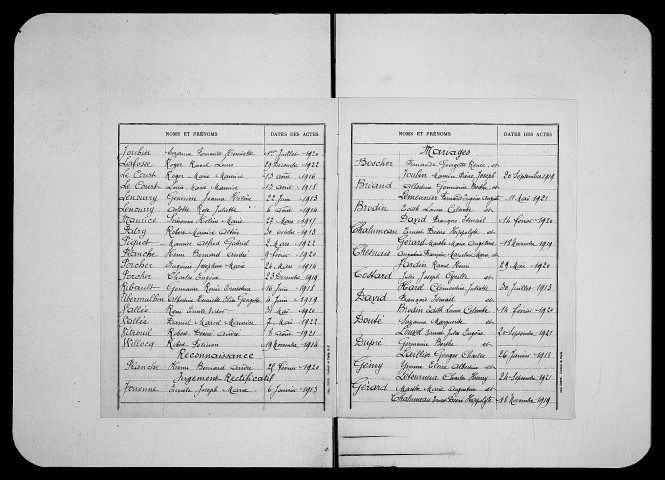 NOMS ET PRÉNOMS DATES DES ACTES
Joubin Suzanne Fernande Henriette 1er Juillet 1920
Lafosse Roger Raoul Louis 29 Décembre 1922
Le Court Roger Marie Maurice 13 août 1916
Le Court Louis Marie Maurice 12 août 1918
Lenourry 22 Juin 1913
Lenourry Colette Rose Juliette 6 août 1914
Maurice Hélène Marie 27 Mars 1917
Patry Robert Maurice 30 octobre 1913
Pépiot Maurice Alfred Gabriel 2 Mars 1922
Planche Henri Bernard André 9 février 1920
Porcher Eugénie Joséphine Marie 20 Mars 1914
Porcher Charles Eugène 23 Décembre 1919
Ribault Germaine Renée Ernestine 16 Juin 1918
Henriette Georgette 4 Juin 1919
Vallée René Emile Victor 31 Mai 1920
Vallée Daniel Marcel Maurice 7 Mai 1922
Robert Désiré André 8 août 1921
Willocq Robert 19 Novembre 1914
Reconnaissance
Planche Henri Bernard André 25 février 1920
Jugement Rectificatif
Jouenne Emile Joseph Marie 6 Janvier 1913
NOMS ET PRÉNOMS DATES DES ACTES
Mariages
Boscher Fernande Georgette Renée et
Joubin Maurice Joseph 20 Septembre 1919
Briand Albertine Germaine et
Lemeunier 11 Mai 1921
Brodin Edith Louise Colombe et
David François Ismaël 14 février 1920
Chalumeau Ernest Désiré Hippolyte et
Gérard Marthe Marie Augustine 18 Novembre 1919
Chesnais Augustine Françoise Marie et
Jardin Raoul Henri 29 Mai 1920
Costard Jules Joseph et
Huard Clémentine Juliette 30 Juillet 1913
David François Ismaël et
Brodin Edith Louise Colombe 14 février 1920
Doubé Suzanne Marguerite et
Ernest Jules Eugène 20 Septembre 1921
Dupré Germaine Berthe et
Laillier Georges Charles 26 Janvier 1918
Gémy Yvonne Albertine et
Letourneur Charles Henry 24 Septembre 1921
Gérard Marthe Marie Augustine et
Chalumeau Ernest Désiré Hippolyte 18 Novembre 1919